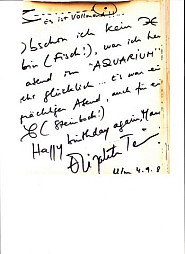 Es ist Vollmond!!
Obschon ich kein ♓
bin (Fisch!), war ich heu
abend im "AQUARIUM"
sehr glücklich... Es war ein
prächtiger Abend, auch für ein
♑ (Steinbock!)
Happy birthday again,
Ulm 4.9.8